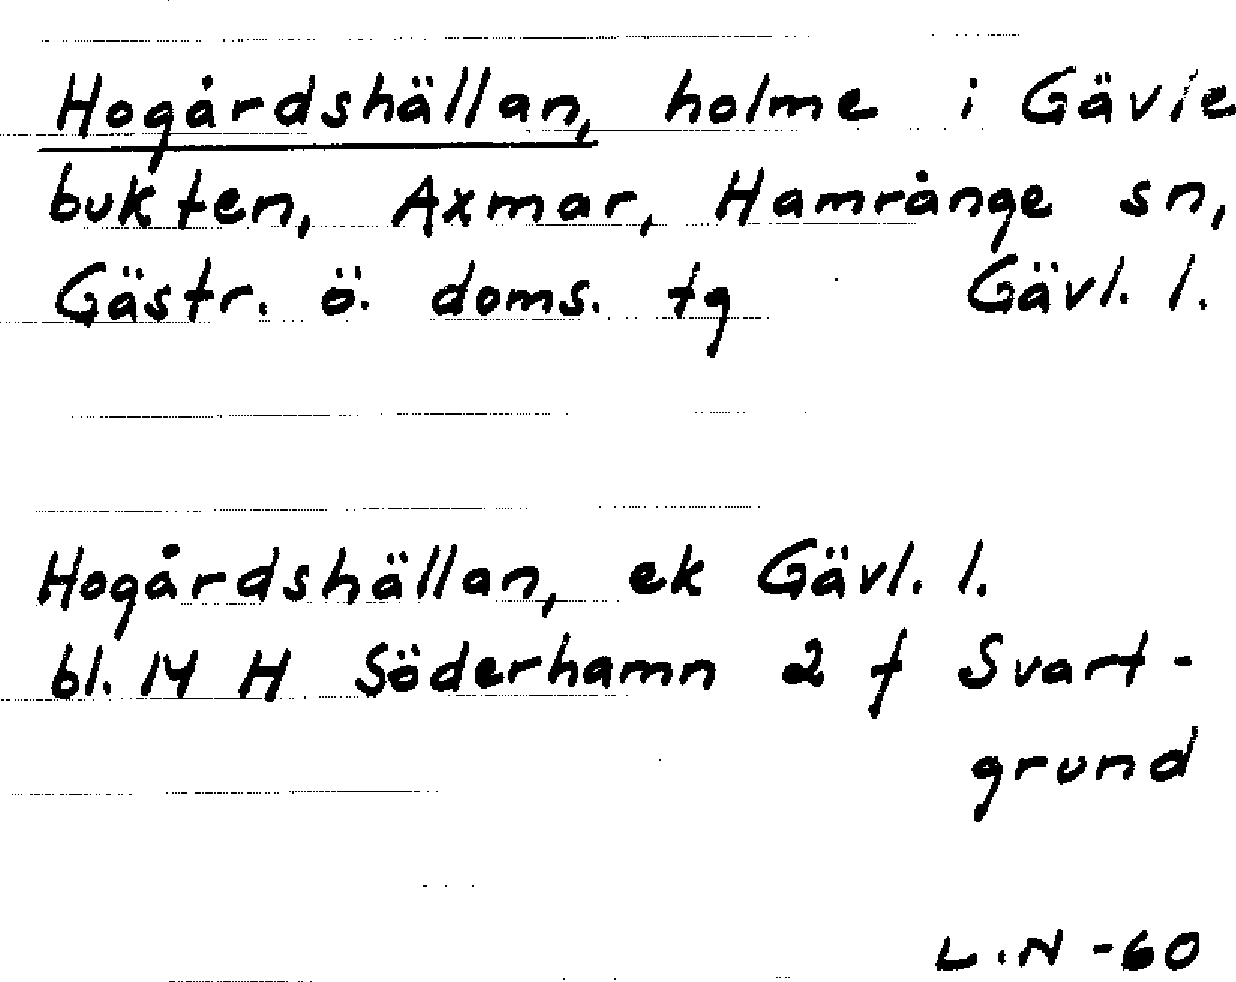 Hogårdshällan, holme i Gävle
bukten, Axmar, Hamrånge sn,
Gästr. ö. doms. tg Gävl. l.
Hogårdshällan, ek Gävl. l.
bl. 14 H Söderhamn 2 f Svart-
grund
L.N -60